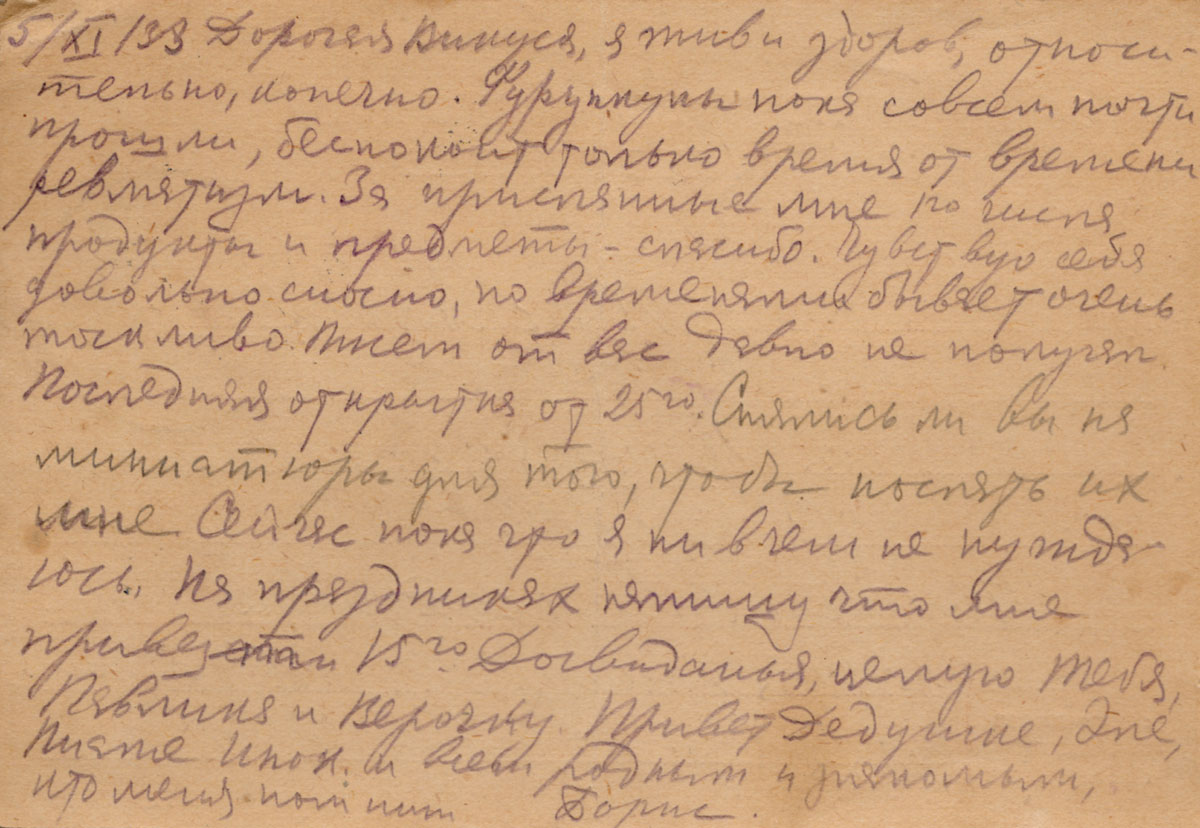 5/XI/33 Дорогая Викуся, я жив и здоров, относи-
тельно, конечно. Фурункулы пока совсем почти
прошли, беспокоит только время от времени
ревматизм. За присланные мне
продукты и предметы - спасибо. Чувствую себя
довольно сносно, но временами бывает очень
тоскливо. Писем от вас давно не получал
Последняя открытка от 25го. Снялись ли вы на
миниатюры для того, чтобы послать их
мне. Сейчас пока что я ни в чем не нужда-
юсь. На праздниках напишу что мне
15го Досвиданья, целую тебя,
Павлика и Верочку. Привет Дедушке, Эле,
и всем родным и знакомым,
кто меня помнит Борис.